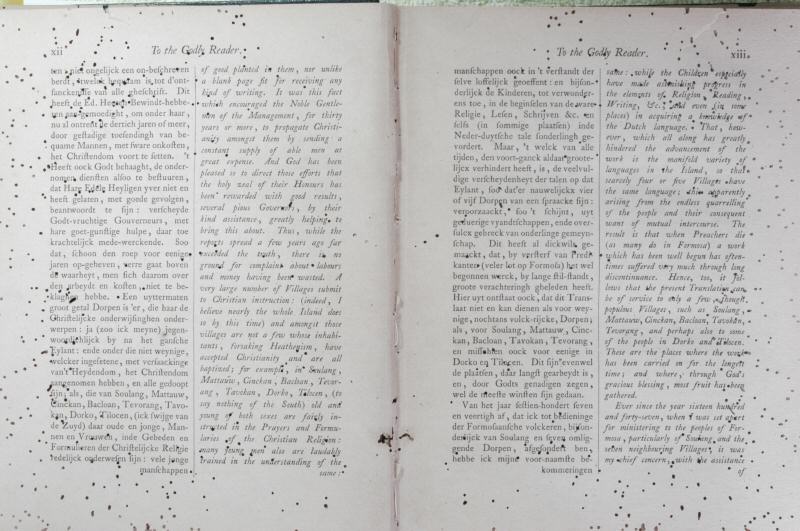 xii
To the Godly Reader.
ten: niet ongelijck een on-beschreven
berdt, 'twelck bequaam is tot d'ont-
fanckenisse van alle gheschrift. Dit
heeft de Ed. Heeren Bewindt-hebbe-
ren aan-gemoedight, om onder haar,
nu al ontrent de dertich jaren of meer,
door gestadige toesendingh van be-
quame Mannen, met sware onkosten,
het Christendom voort te setten. 't
Heeft oock Godt behaaght, de onder-
nomen diensten alsoo te bestuuren,
dat Hare Edele Heyligen yver niet en
heeft gelaten, met goede gevolgen,
beantwoordt te sijn: verscheyde
Godt-vruchtige Gouverneurs, met
hare goet-gunstige hulpe, daar toe
krachtelijck mede-werckende. Soo
dat, schoon den roep voor eenige
jaren op-geheven, verre gaat boven
de waarheyt, men sich daarom over
den arbeydt en kosten, niet te be-
klagen hebbe. Een uyttermaten
groot getal Dorpen is'er, die haar de
Christelijcke onderwijsinghen onder-
werpen: ja (zoo ick meyne) jegen-
woordichlijck by na het gansche
Eylant: ende onder die niet weynige,
welcker ingesetene, met versaeckinge
van't Heydendom, het Christendom
aangenomen hebben, en alle gedoopt
sijn: als, die van Soulang, Mattauw,
Cinckan, Bacloan, Tevorang, Tavo-
kan, Dorko, Tilocen, (ick swijge van
de Zuyd) daar oude en jonge, Man-
nen en Vrouwen, inde Gebeden en
Formulieren der Christelijcke Religie
redelijck onderwesen sijn: vele jonge
manschappen
of good planted in them, nor unlike
a blank page fit for receiving any
kind of writing. It was this fact
which encouraged the Noble Gentle-
men of the Management, for thirty
years or more, to propagate Christi-
anity amongst them by sending a
constant supply of able men at
great expense. And God has been
pleased so to direct those efforts that
the holy zeal of their Honours has
been rewarded with good results,
several pious Governors, by their
kind assistance, greatly helping to
bring this about. Thus, while the
reports spread a few years ago far
exceeded the truth, there is no
ground for complaint about labours
and money having been wasted. A
very large number of Villages submit
to Christian instruction: (indeed, I
believe nearly the whole Island does
so by this time) and amongst those
villages are not a few whose inhabi-
tants, forsaking Heathenism, have
accepted Christianity and are all
baptised; for example, in Soulang,
Mattauw, Cinckan, Bacloan, Tevor-
ang, Tavokan, Dorko, Tilocen, (to
say nothing of the South) old and
young of both sexes are fairly in-
structed in the Prayers and Formu-
laries of the Christian Religion:
many young men also are laudably
trained in the understanding of the
same:
To the Godly Reader.
xiii
manschappen oock in 't verstandt der
selve loffelijck geoeffent: en bijson-
derlijck de Kinderen, tot verwonder-
ens toe, in de beginselen van de ware
Religie, Lesen, Schrijven &c. en
selfs (in sommige plaatsen) inde
Neder-duytsche tale sonderlingh ge-
vordert. Maar, 't welck van alle
tijden, den voort-ganck aldaar groote-
lijcx verhindert heeft, is, de veelvul-
dige verscheydenheyt der talen op dat
Eylant, soo dat'er nauwelijckx vier
of vijf Dorpen van een spraacke sijn:
verporzaackt, soo 't schijnt, uyt
geduerige vyandtschappen, ende over-
sulcx gebreck van onderlinge gemeyn-
schap. Dit heeft al dickwils ge-
maackt, dat, by versterf van Predi-
kanten (veler let op Formosa) het wel
begonnen werck, by lange stil-standt,
groote verachteringh gheleden heeft.
Hier uyt ontstaat oock, dat dit Trans-
laat niet en kan dienen als voor wey-
nige, nochtans volck-rijcke, Dorpen;
als, voor Soulang, Mattauw, Cinc-
kan, Bacloan, Tavokan, Tevorang,
en misschien oock voor eenige in
Dorko en Tilocen. Dit sijn'evenwel
de plaatsen, daar langst gearbeydt is,
en, door Godts genadigen zegen,
wel de meeste winsten sijn gedaan.
Van het jaar sestien-hondert seven
en veertigh af, dat ick tot bedieninge
der Formosaansche volckeren, bijson-
derlijck van Soulang en seven omlig-
gende Dorpen, afgesondert ben,
hebbe ick mijne voor-naamste be-
kommeringen
same: while the Children especially
have made astonishing progress in
the elements of Religion, Reading,
Writing, &c., and even (in some
places) in acquiring a knowledge of
the Dutch language. That, how-
ever, which all along has greatly
hindered the advancement of the
work is the manifold variety of
languages in the Island, so that
scarcely four or five Villages have
the same language; this apparently
arising from the endless quarrelling
of the people and their consequent
want of mutual intercourse. The
result is that when Preachers die
(as many do in Formosa) a work
which has been well begun has often-
times suffered very much through long
discontinuance. Hence, too, it fol-
lows that the present Translation can
be of service to only a few, though
populous Villages, such as Soulang,
Mattauw, Cinckan, Bacloan, Tavokan,
Tevorang, and perhaps also to some
of the people in Dorko and Tilocen.
These are the places where the work
has been carried on for the longest
time; and where, through God's
gracious blessing, most fruit has been
gathered.
Ever since the year sixteen hundred
and forty-seven, when I was set apart
for ministering to the peoples of For-
mosa, particularly of Soulang and the
seven neighbouring Villages, it was
my chief concern, with the assistance
of